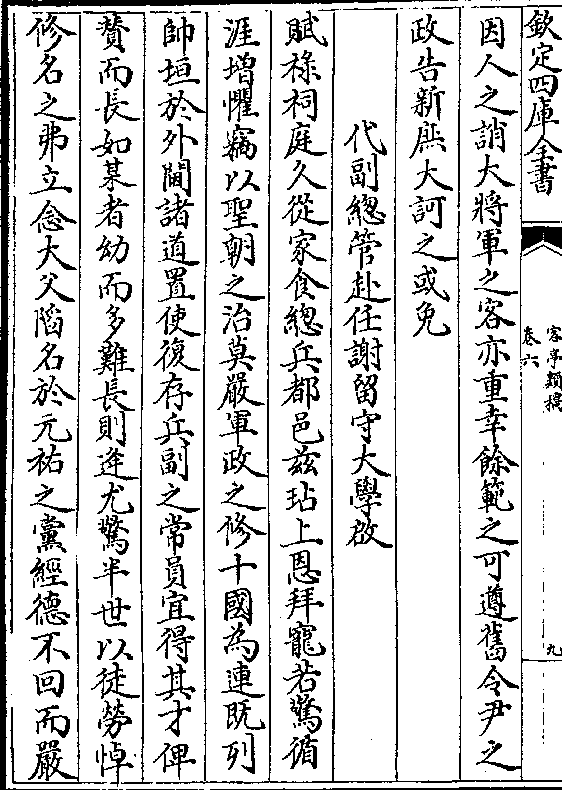 欽定四庫全書
客亭類稿
卷六
九
因人之誚大將軍之客亦重幸餘範之可遵舊令尹之
政告新庶大訶之或免
代副總管赴任謝留守大學啟
賦祿祠庭久從家食總兵都邑兹玷上恩拜寵若驚循
涯增懼竊以聖朝之治莫嚴軍政之修十國為連既列
帥垣於外閫諸道置使復存兵副之常員宜得其才俾
贊而長如某者幼而多難長則逢尤驚半世以徒勞悼
修名之弗立念大父陷名於元祐之黨經德不回而嚴